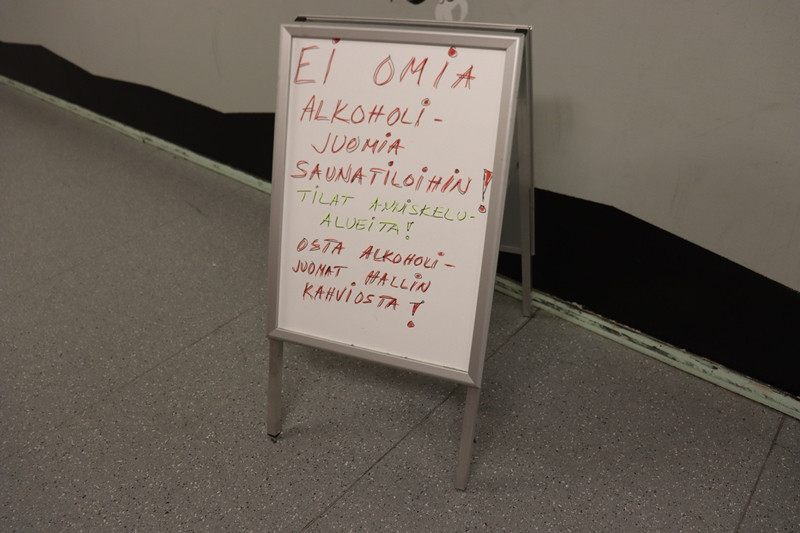 EI OMIA
ALKOHOLI-
JUOMIA
SAUNATILOIHIN!
TILAT ANNISKELU-
ALUEITA!
OSTA ALKOHOLI-
JUOMAT HALLIN
KAHVIOSTA!